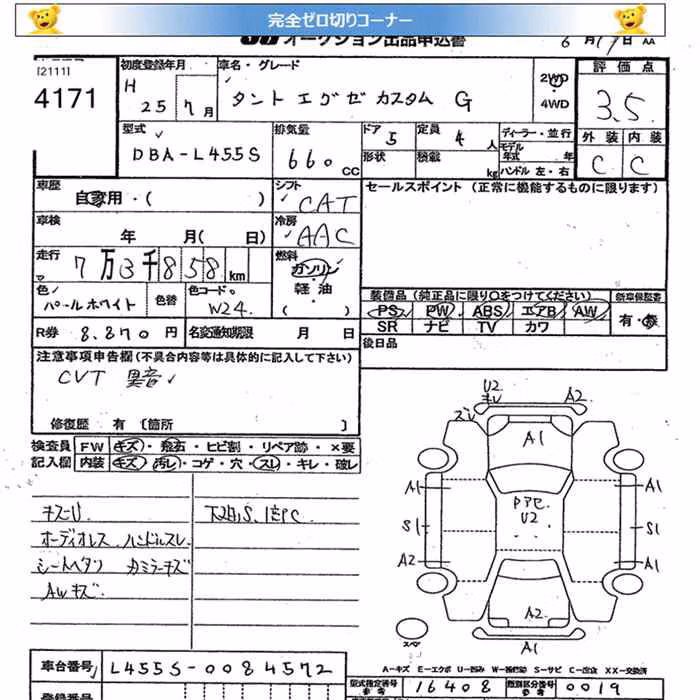 完全ゼロ切りコーナー
オークション出品申込書 6月19日 AA
[2111]
4171
初度登録年月 H 25年 7月
車名・グレード タント エグゼ カスタム G
2WD・4WD
評価点 3.5
外装 C 内装 C
型式 DBA-L455S
排気量 660 CC
ドア 5
形状
定員 4人
積載 kg
ディーラー・並行
モデル年式 年
ハンドル 左・右
車歴 自家用・( )
シフト CAT
冷房 AAC
セールスポイント (正常に機能するものに限ります)
車検 年 月( 日)
走行 7万3千858km
燃料 ガソリン・軽油 ・( )
色 パールホワイト
色替
色コード W24
装備品 (純正品に限り○をつけてください)
PS PW ABS エアB AW
SR ナビ TV カワ
新車保証書 有・無
R券 8.870円
名変通知期限 月 日
後日品
注意事項申告欄(不具合内容等は具体的に記入して下さい)
CVT 異音
修復歴 有 [箇所 ]
検査員記入欄
FW キズ・飛石・ヒビ割・リペア跡・×要
内装 キズ・汚レ・コゲ・穴・スレ・キレ・破レ
キズU
オーディオレス ハンドルスレ
シートヘタリ カミラーキズ
AWキズ
下廻S.
U2 キレ A2
ズレ
A1
A1 A1
Pアセ
U2
S1 S1
A2 A1
A2
A1
スペア
A-キズ E-エクボ U-凹み W-補修跡 S-サビ C-腐食 XX-交換済
車台番号 L455S-0084572
型式指定番号 参考 16408
類別区分番号 参考 0019
登録番号